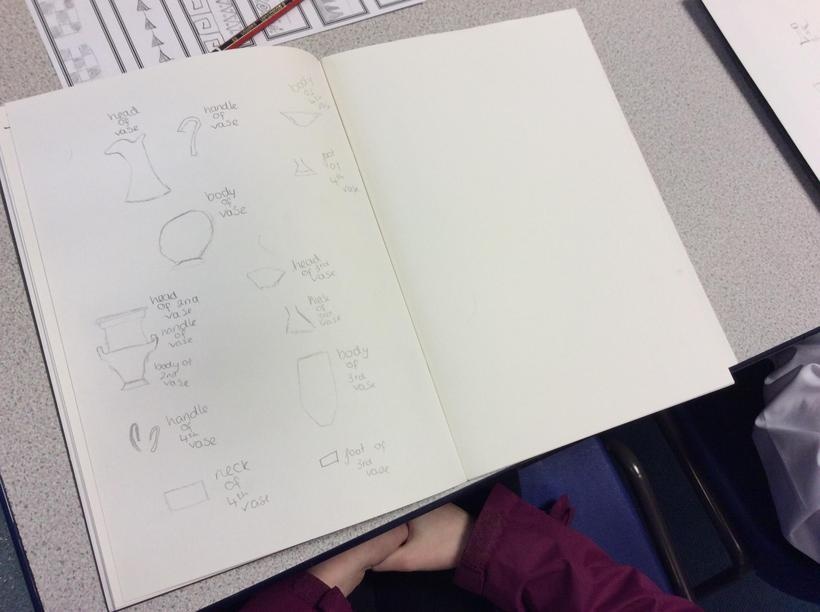 head
of
vase
handle
of
vase
body
of
4th
body
of
vase
foot
of
4th
vase
head
of 3rd
vase
head
of 2nd
vase
handle
of
vase
body of
2nd
vase
Neck
of
3rd
vase
body
of
3rd
vase
handle
of
4th
vase
neck
of
4th
vase
foot of
3rd
vase